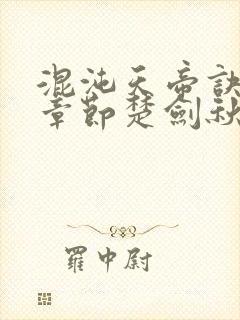 混沌天帝訣
章節楚劍秋
羅中尉